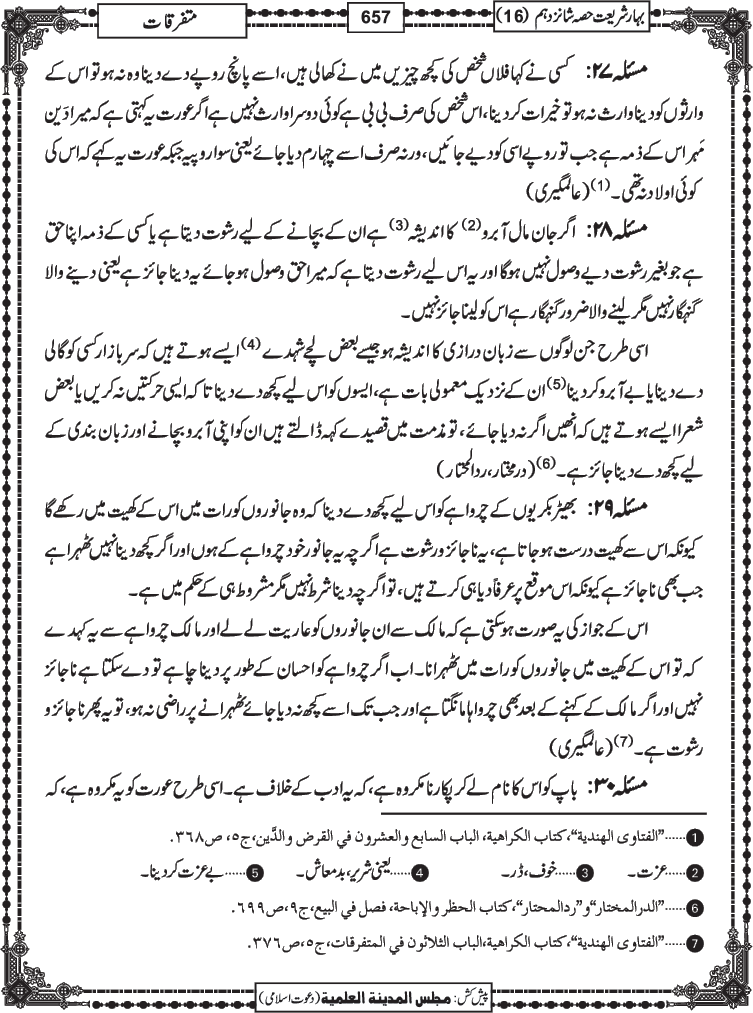 بہارِ شریعت حصہ شانزدہم (16)
657
متفرقات
مسئلہ ۲۷: کسی نے کہا فلاں شخص کی کچھ چیزیں میں نے کھالی ہیں، اسے پانچ روپے دے دینا وہ نہ ہو تو اس کے
وارثوں کو دینا وارث نہ ہو تو خیرات کر دینا، اس شخص کی صرف بی بی ہے کوئی دوسرا وارث نہیں ہے اگر عورت یہ کہتی ہے کہ میرا دَین
مَہر اس کے ذمہ ہے جب تو روپے اسی کو دیے جائیں، ورنہ صرف اسے چہارم دیا جائے یعنی سوا روپیہ جبکہ عورت یہ کہے کہ اس کی
کوئی اولاد نہ تھی۔(1) (عالمگیری)
مسئلہ ۲۸: اگر جان مال آبرو(2) کا اندیشہ(3) ہے ان کے بچانے کے لیے رشوت دیتا ہے یا کسی کے ذمہ اپنا حق
ہے جو بغیر رشوت دیے وصول نہیں ہوگا اور یہ اس لیے رشوت دیتا ہے کہ میرا حق وصول ہو جائے یہ دینا جائز ہے یعنی دینے والا
گنہگار نہیں مگر لینے والا ضرور گنہگار ہے اس کو لینا جائز نہیں۔
اسی طرح جن لوگوں سے زبان درازی کا اندیشہ ہو جیسے بعض لچے شہدے(4) ایسے ہوتے ہیں کہ سر بازار کسی کو گالی
دے دینا یا بے آبرو کر دینا(5) ان کے نزدیک معمولی بات ہے، ایسوں کو اس لیے کچھ دے دینا تا کہ ایسی حرکتیں نہ کریں یا بعض
شعرا ایسے ہوتے ہیں کہ انھیں اگر نہ دیا جائے، تو مذمت میں قصیدے کہہ ڈالتے ہیں ان کو اپنی آبرو بچانے اور زبان بندی کے
لیے کچھ دے دینا جائز ہے۔(6) (درمختار، ردالمحتار)
مسئلہ ۲۹: بھیڑ بکریوں کے چرواہے کو اس لیے کچھ دے دینا کہ وہ جانوروں کو رات میں اس کے کھیت میں رکھے گا
کیونکہ اس سے کھیت درست ہو جاتا ہے، یہ ناجائز و رشوت ہے اگرچہ یہ جانور خود چرواہے کے ہوں اور اگر کچھ دینا نہیں ٹھہرا ہے
جب بھی ناجائز ہے کیونکہ اس موقع پر عرفاً دیا ہی کرتے ہیں، تو اگرچہ دینا شرط نہیں مگر مشروط ہی کے حکم میں ہے۔
اس کے جواز کی یہ صورت ہو سکتی ہے کہ مالک سے ان جانوروں کو عاریت لے لے اور مالک چرواہے سے یہ کہدے
کہ تو اس کے کھیت میں جانوروں کو رات میں ٹھہرانا۔ اب اگر چرواہے کو احسان کے طور پر دینا چاہے تو دے سکتا ہے ناجائز
نہیں اور اگر مالک کے کہنے کے بعد بھی چرواہا مانگتا ہے اور جب تک اسے کچھ نہ دیا جائے ٹھہرانے پر راضی نہ ہو، تو یہ پھر ناجائز و
رشوت ہے۔(7) (عالمگیری)
مسئلہ ۳۰: باپ کو اس کا نام لے کر پکارنا مکروہ ہے، کہ یہ ادب کے خلاف ہے۔ اسی طرح عورت کو یہ مکروہ ہے، کہ
1 ......”الفتاوى الهندية“، كتاب الكراهية، الباب السابع والعشرون في القرض والدَّين، ج٥، ص٣٦٨.
2 ......عزت۔ 3 ......خوف، ڈر۔ 4 ......یعنی شریر، بدمعاش۔ 5 ......بے عزت کر دینا۔
6 ......”الدرالمختار“و ”ردالمحتار“، كتاب الحظر والإباحة، فصل في البيع، ج٩، ص٦٩٩.
7 ......”الفتاوى الهندية“، كتاب الكراهية، الباب الثلاثون في المتفرقات، ج٥، ص٣٧٦.
پیش کش: مجلس المدینة العلمیة (دعوت اسلامی)